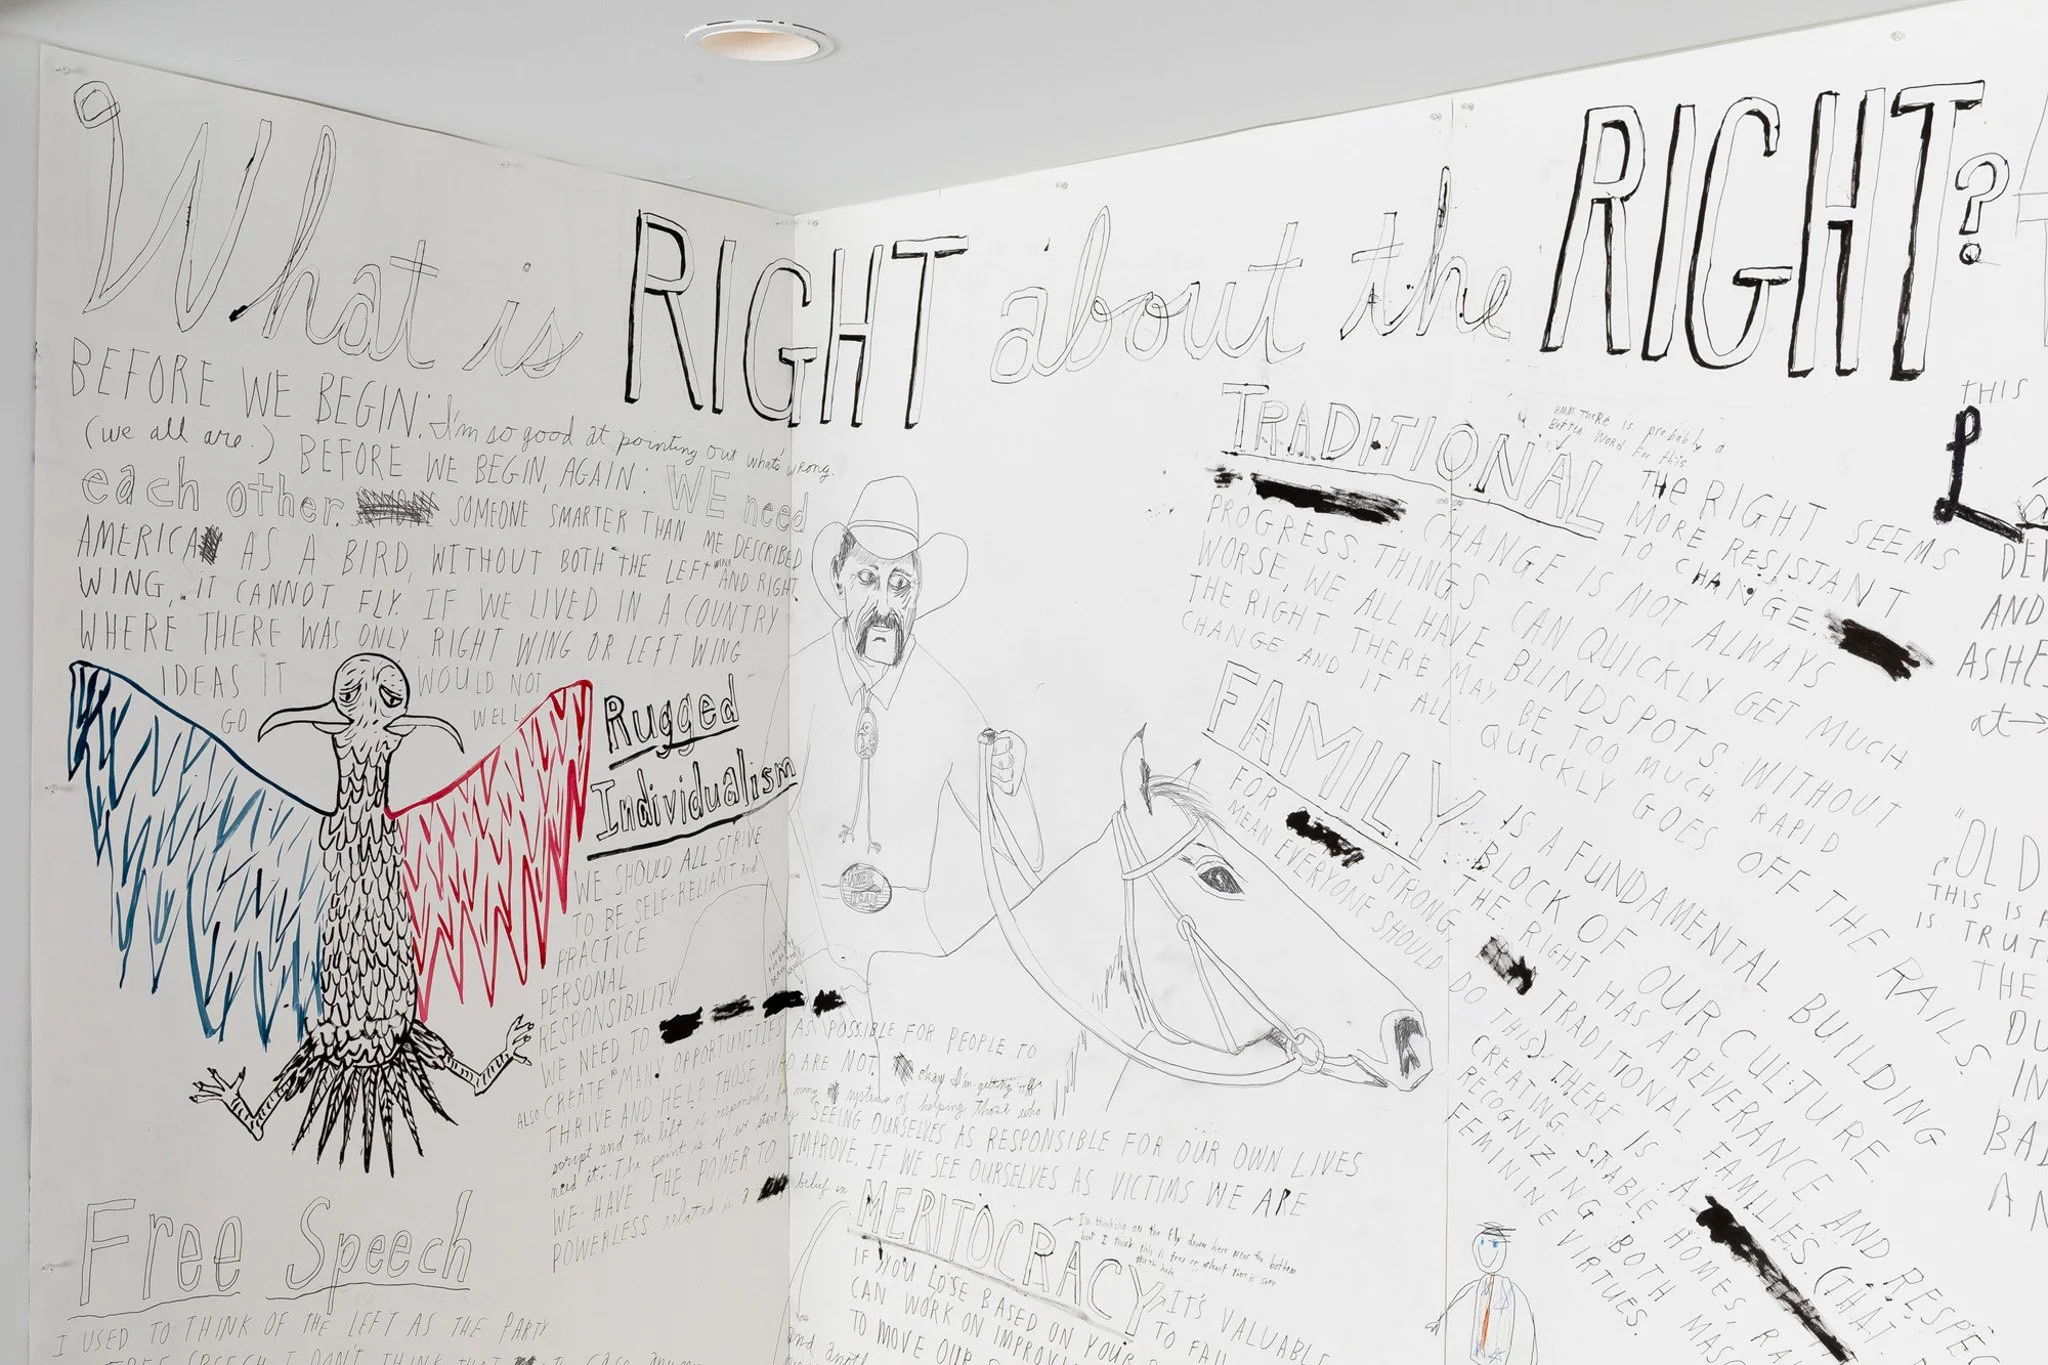 What is RIGHT about the RIGHT?
BEFORE WE BEGIN: I'm so good at pointing out what's wrong.
(we all are.) BEFORE WE BEGIN, AGAIN: WE need
each other. SOMEONE SMARTER THAN ME DESCRIBED
AMERICA AS A BIRD, WITHOUT BOTH THE LEFT WING AND RIGHT
WING, IT CANNOT FLY. IF WE LIVED IN A COUNTRY
WHERE THERE WAS ONLY RIGHT WING OR LEFT WING
IDEAS IT WOULD NOT
GO WELL
Rugged
Individualism
WE SHOULD ALL STRIVE
TO BE SELF-RELIANT and
PRACTICE
PERSONAL
RESPONSIBILITY
WE NEED TO AS POSSIBLE FOR PEOPLE TO
ALSO CREATE MANY OPPORTUNITIES
THRIVE AND HELP THOSE WHO ARE NOT. okay I'm getting off
script and the left is responsible for many systems of helping those who
need it. The point is if we start by SEEING OURSELVES AS RESPONSIBLE FOR OUR OWN LIVES
WE HAVE THE POWER TO IMPROVE. IF WE SEE OURSELVES AS VICTIMS WE ARE
POWERLESS. related is a belief in
MERITOCRACY
I'm thinking on the fly down here near the bottom
but I think this is true
IT'S VALUABLE
TO FAIL
IF YOU LOSE BASED ON YOUR
CAN WORK ON
TO MOVE OUR
and
Free Speech
I USED TO THINK OF THE LEFT AS THE PARTY
FREE SPEECH I DON'T THINK that
TRADITIONAL
HMM THERE IS probably a
BETTER WORD FOR this
THE RIGHT SEEMS
MORE RESISTANT
TO CHANGE.
CHANGE IS NOT ALWAYS
PROGRESS. THINGS CAN QUICKLY GET MUCH
WORSE, WE ALL HAVE BLINDSPOTS. WITHOUT
THE RIGHT THERE MAY BE TOO MUCH RAPID
CHANGE AND IT ALL QUICKLY GOES OFF THE RAILS.
FAMILY
IS A FUNDAMENTAL BUILDING
BLOCK OF OUR CULTURE.
THE RIGHT HAS A REVERANCE AND RESPEC
FOR STRONG, TRADITIONAL FAMILIES. (THAT
MEAN EVERYONE SHOULD DO THIS) THERE IS A
CREATING STABLE HOMES, RA
RECOGNIZING BOTH MASC
FEMININE VIRTUES.
THIS
L
DE
AND
ASHE
at
"OLD
THIS IS A
IS TRUT
THE
DU
IN
BA
AN